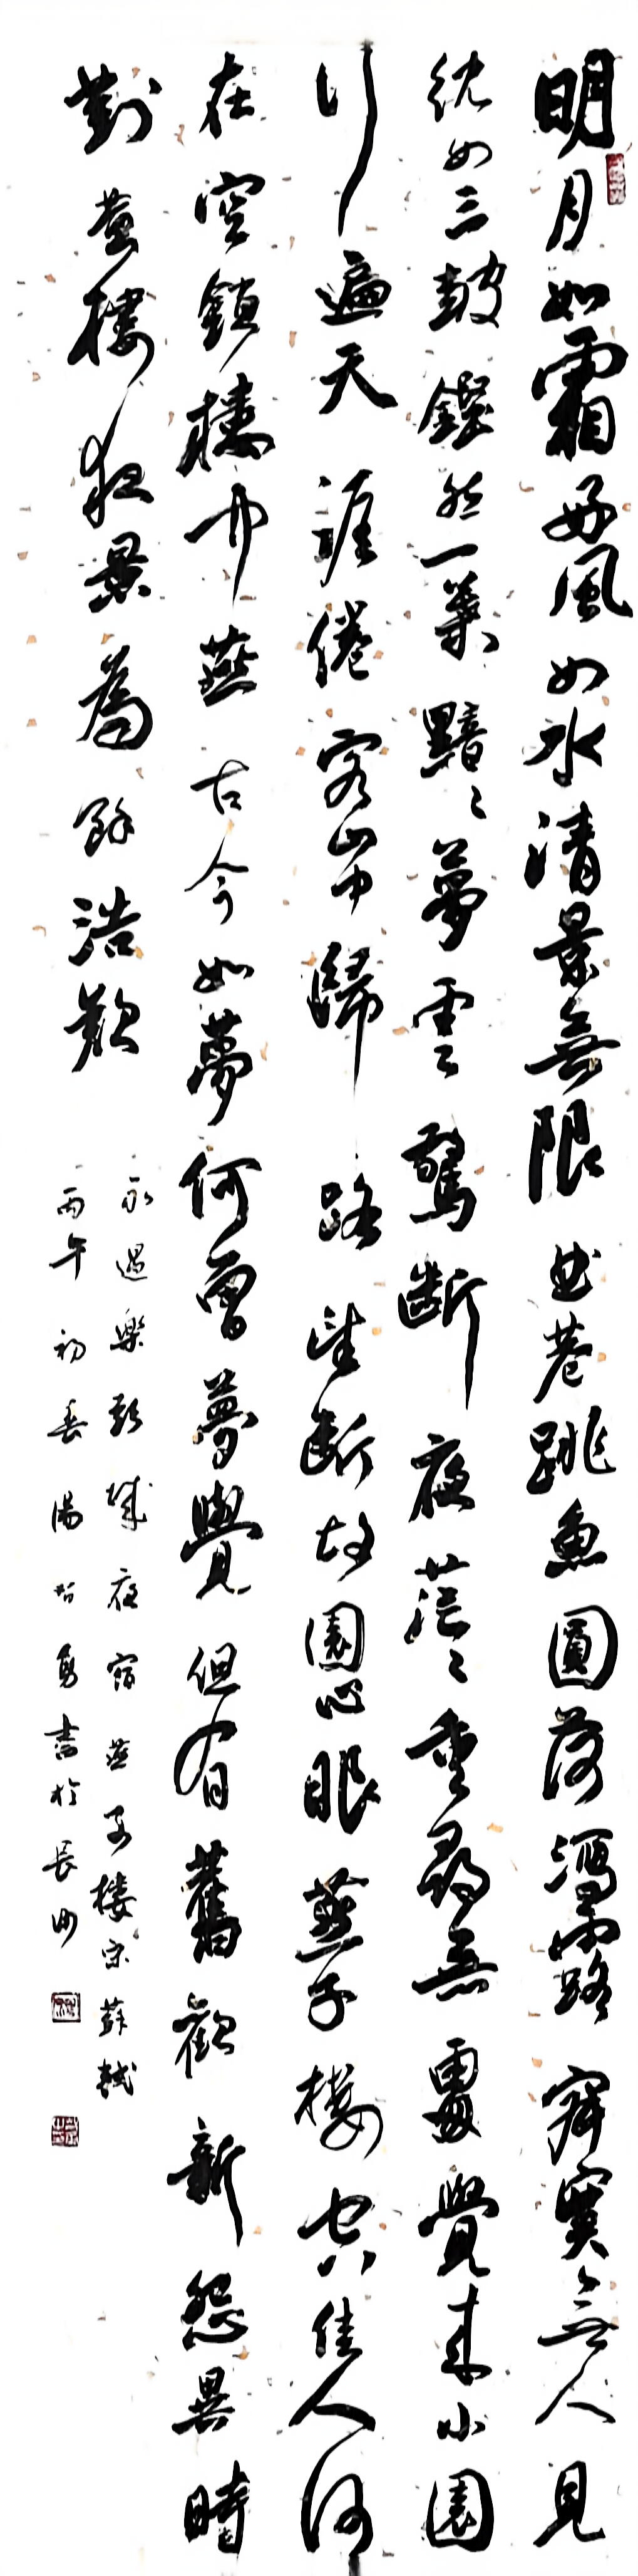 明月如霜好風如水清景無限曲巷跳魚圓荷瀉露寂寞無人見
紞如三鼓鏗然一葉黯々夢雲驚斷夜茫々重尋無處覺來小園
行遍天涯倦客山中歸路望斷故園心眼燕子樓空佳人何
在空鎖樓中燕古今如夢何曾夢覺但有舊歡新怨異時
對黃樓夜景為餘浩歎
永遇樂彭城夜宿燕子樓宋蘇軾
丙午初春湯勇書於長沙